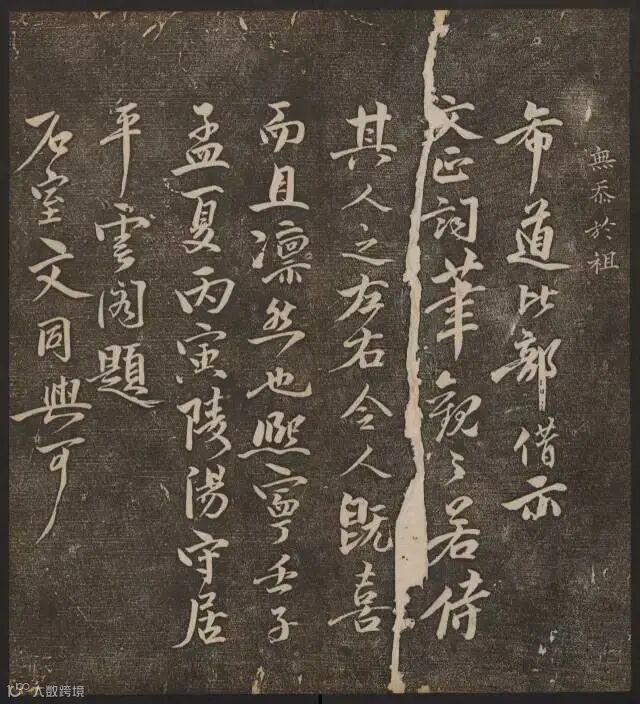 無忝於祖
希道比部借示
文正詞筆觀之若侍
其人之左右令人既喜
而且凛然也熙寧壬子
孟夏丙寅陵陽守居
平雲閣題
石室文同與可
大数跨境